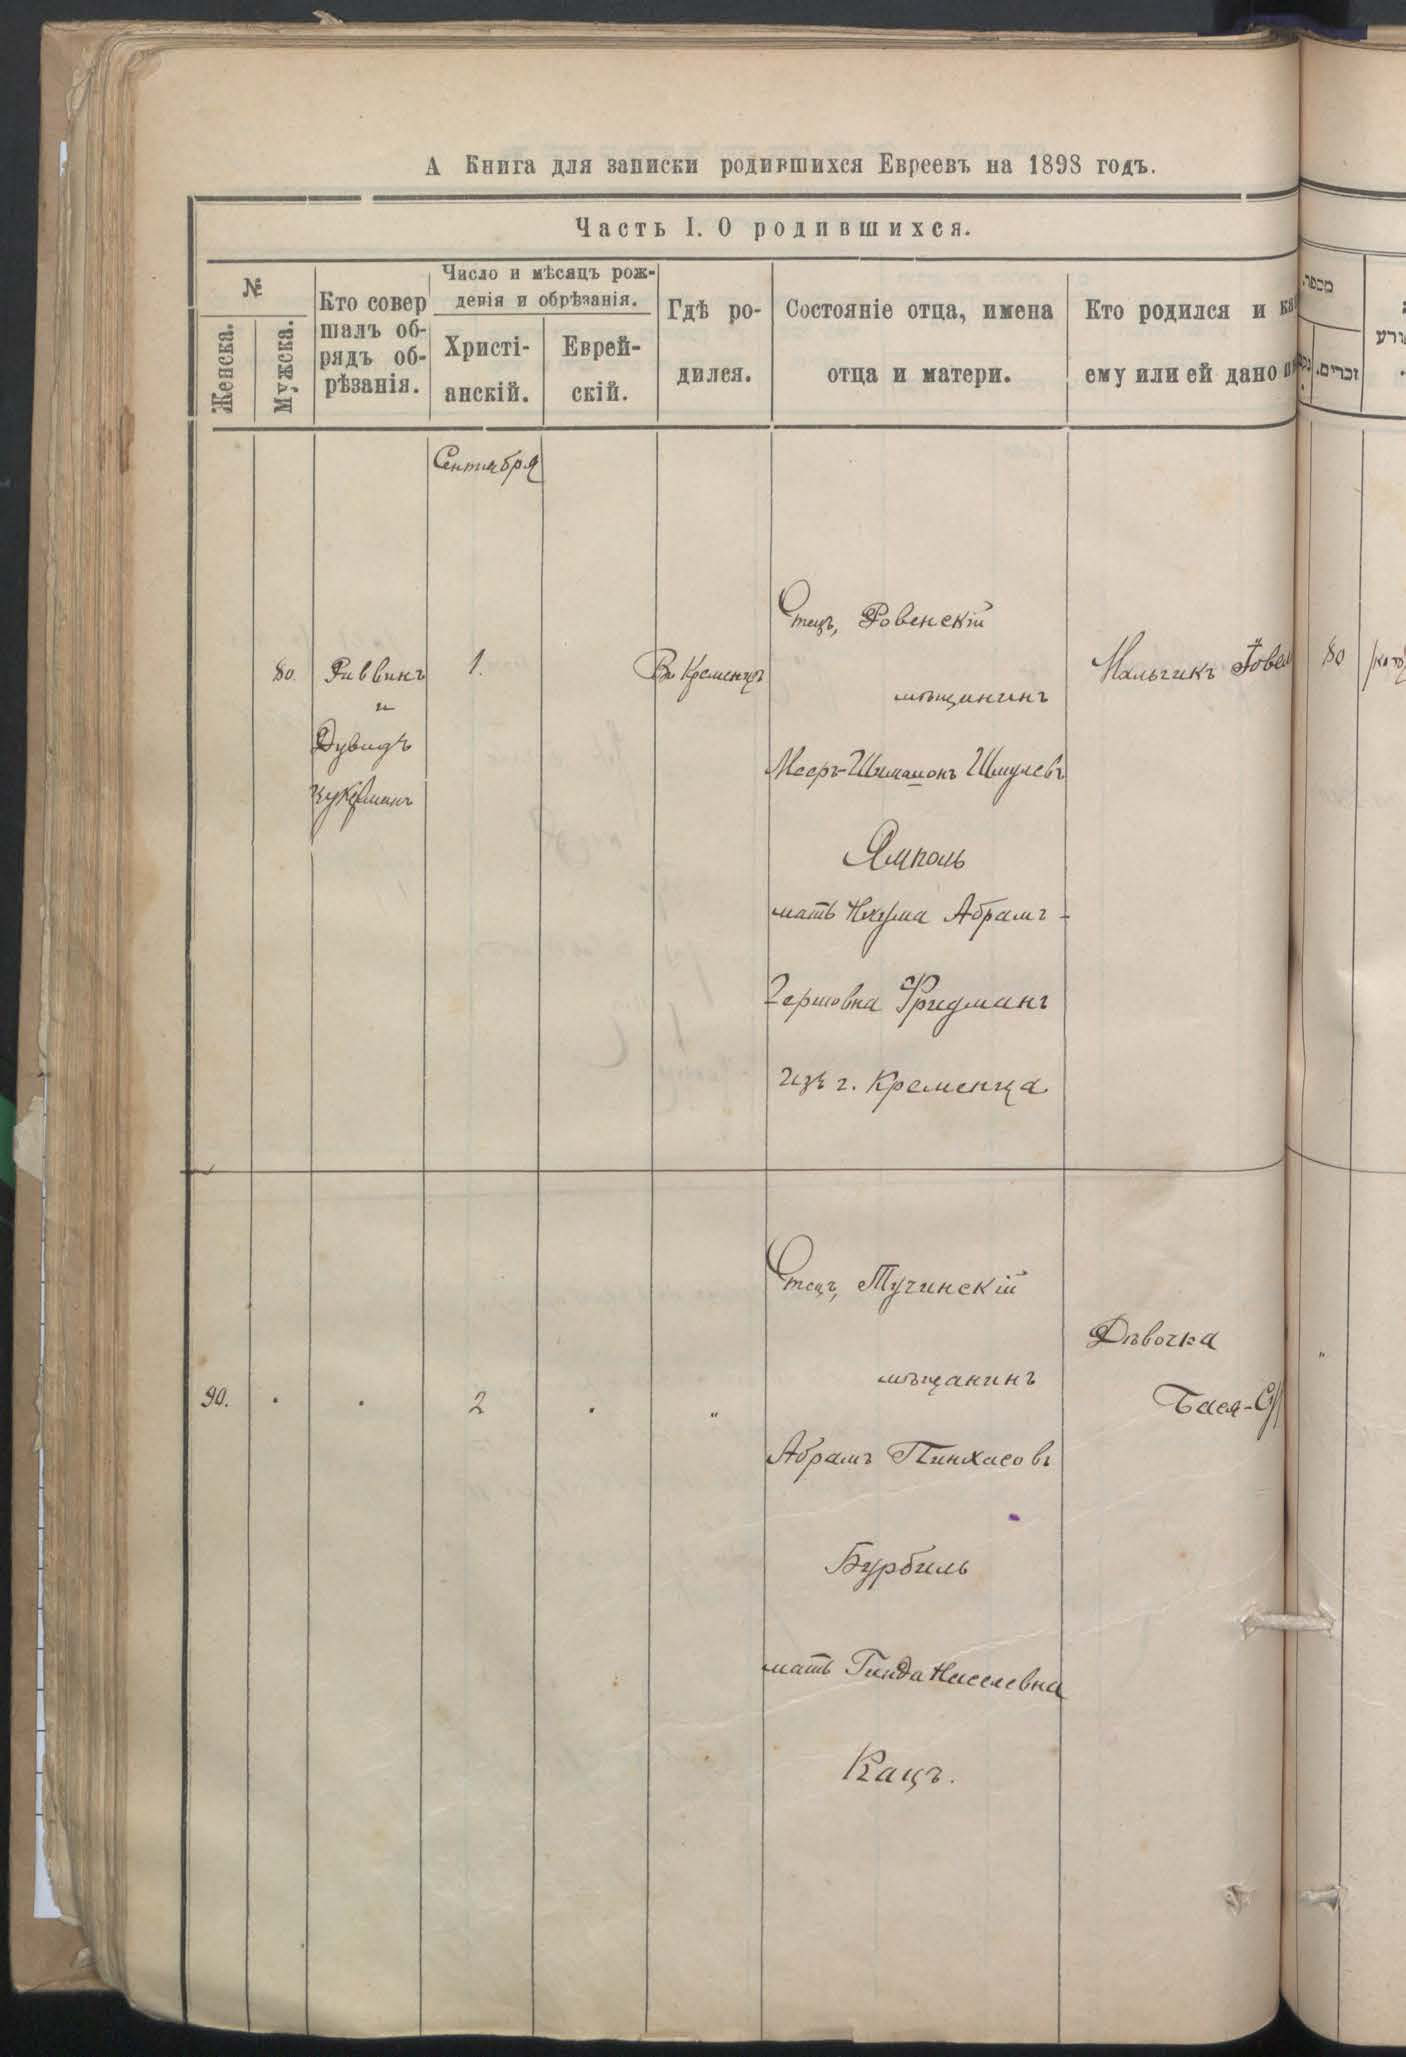 А Книга для записки родившихся Евреевъ на 1898 годъ.
Часть I. О родившихся.
№
Женска.
Мужска.
Кто совер
шалъ об-
рядъ об-
рѣзанія.
Число и мѣсяцъ рож-
денія и обрѣзанія.
Христі-
анскій.
Еврей-
скій.
Гдѣ ро-
дился.
Состояніе отца, имена
отца и матери.
Кто родился и ка
ему или ей дано
מספר.
זכרים.
Сентября
80.
Раввинъ
и
Дувидъ
Цукерманъ
1.
Въ Кременцѣ
Отецъ, Ровенскій
мѣщанинъ
Мееръ-Шимашонъ Шмулевъ
Ямполь
мать Нхума Абрамъ-
Гершовна Фридманъ
изъ г. Кременца
Мальчикъ
80
90.
2
"
Отецъ, Тучинскій
мѣщанинъ
Абрамъ Пинхасовъ
Бурбиль
мать Гинда Ниселевна
Кацъ.
Дѣвочка
Бася-
"